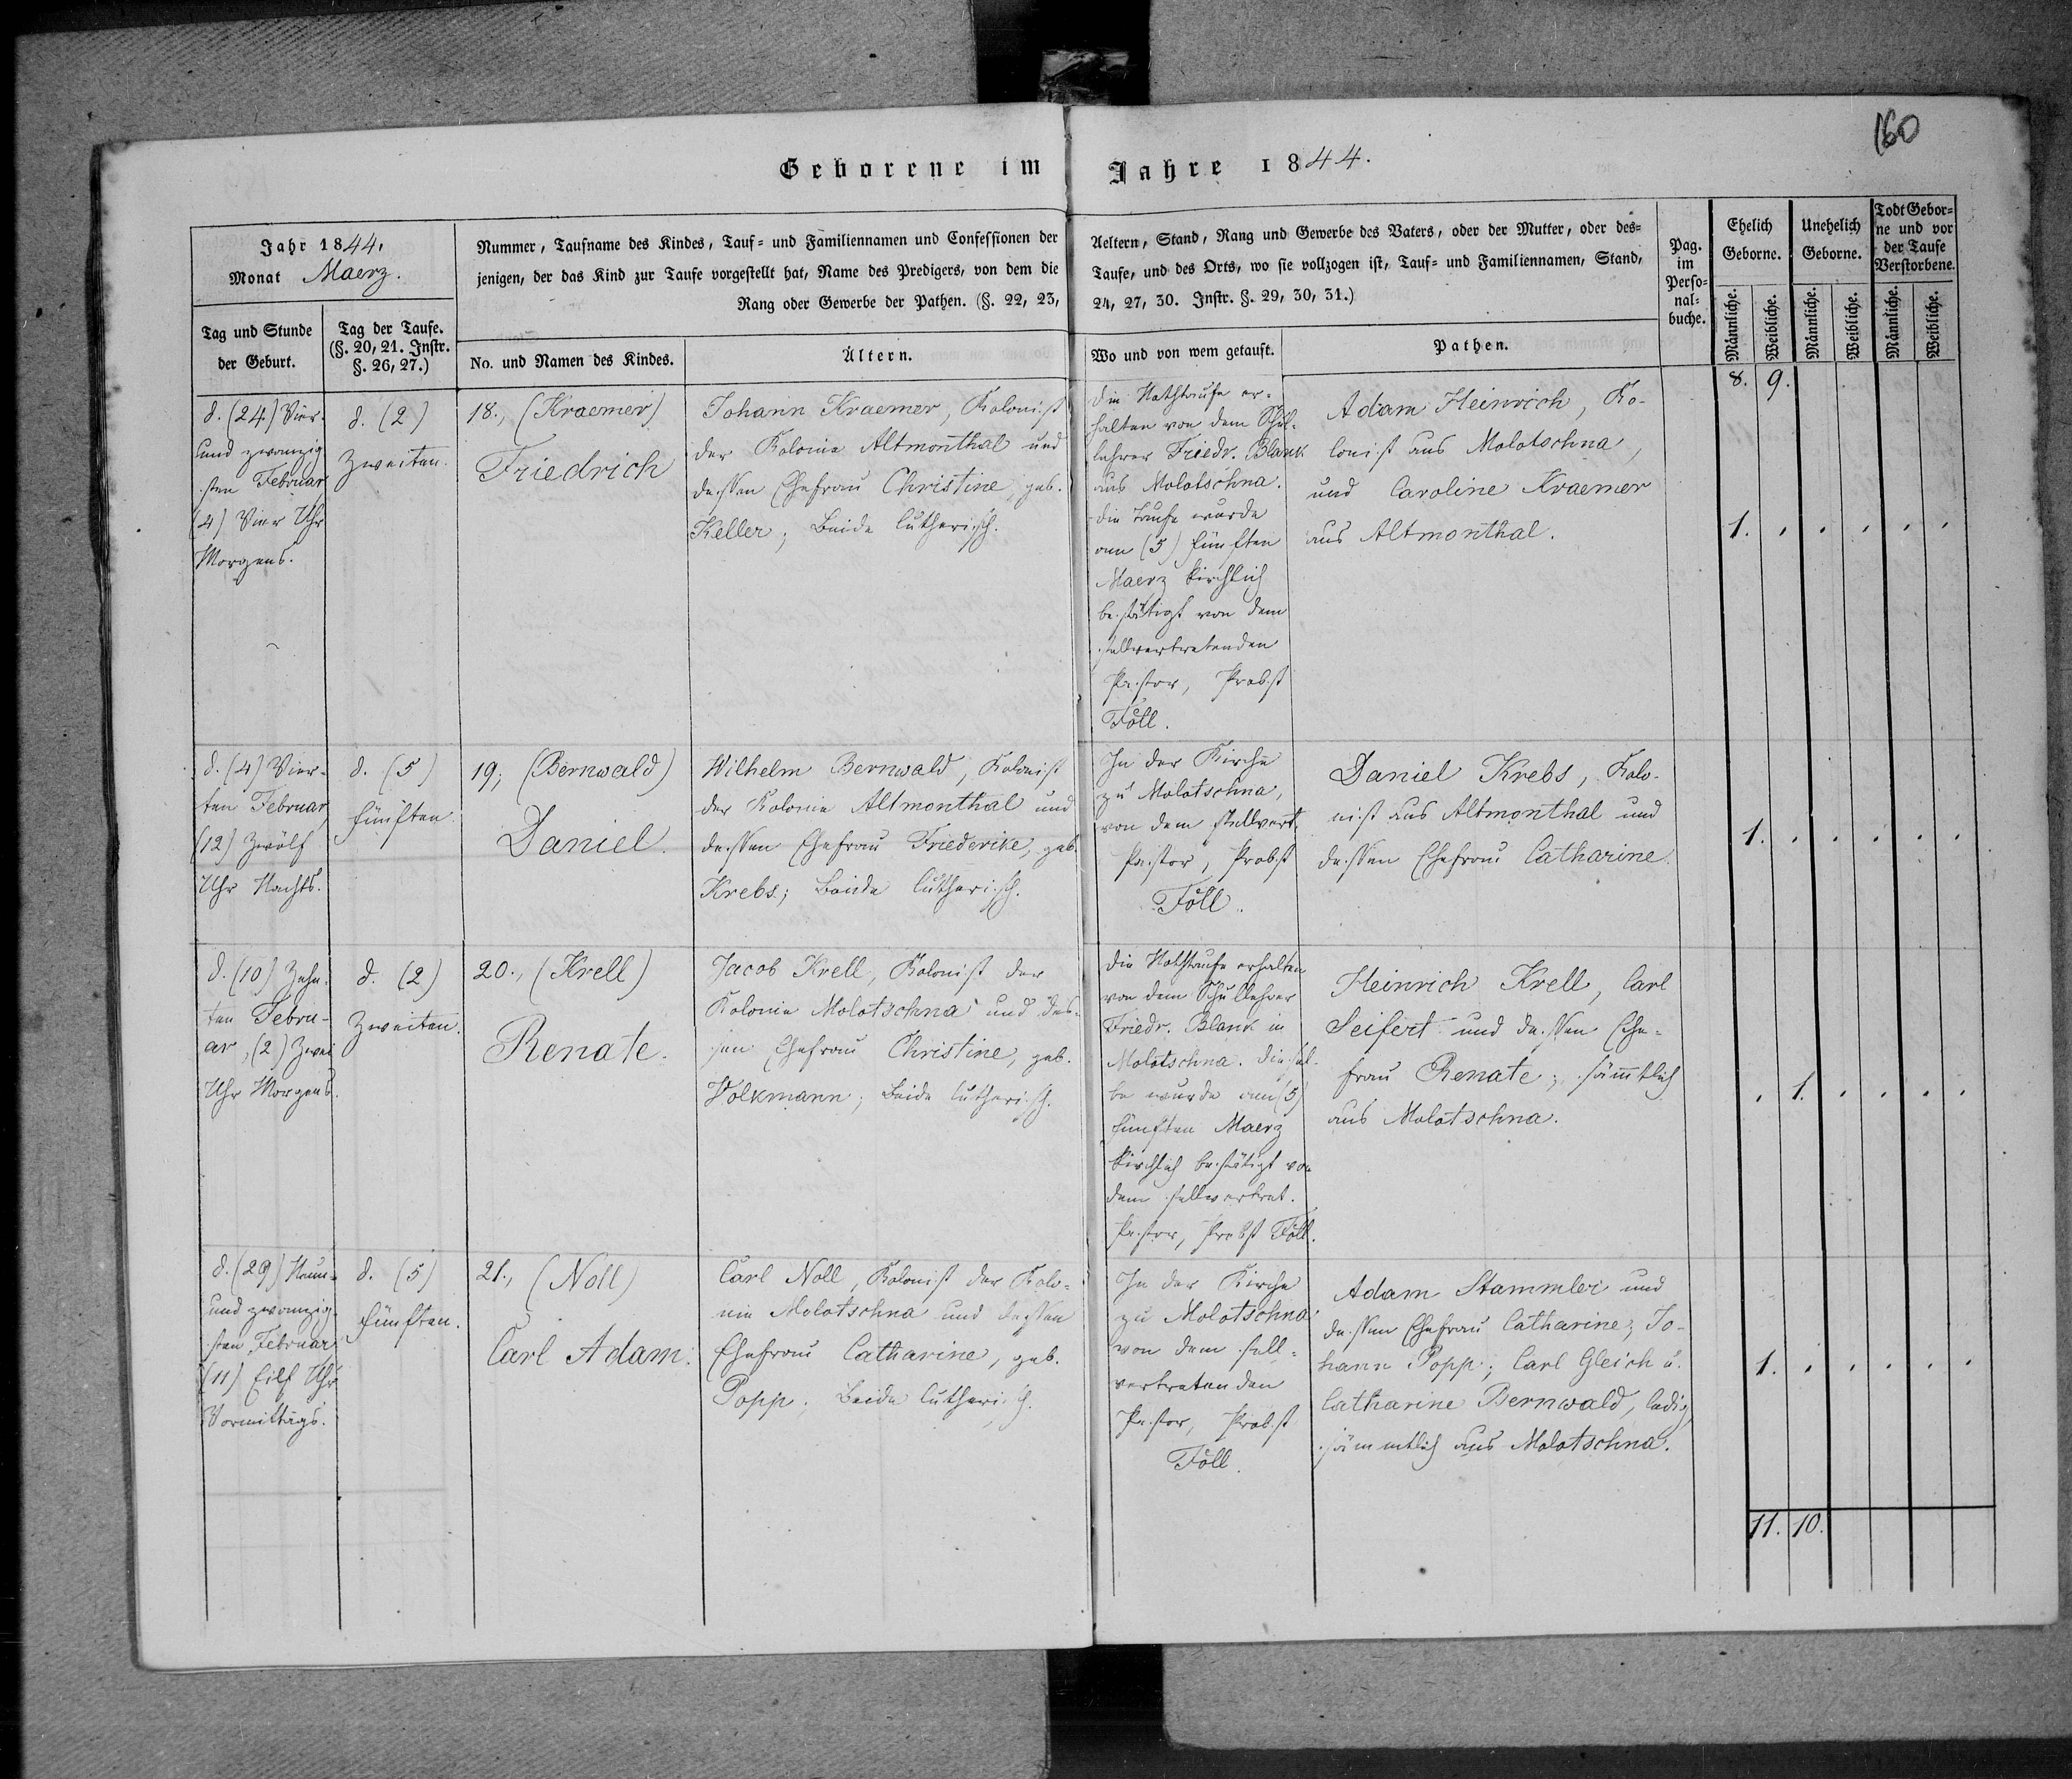 160
Geborene im Jahre 1844.
Jahr 1844.
Monat Maerz.
Nummer, Taufname des Kindes, Tauf- und Familiennamen und Confessionen der Aeltern, Stand, Rang und Gewerbe des Vaters, oder der Mutter, oder des-
jenigen, der das Kind zur Taufe vorgestellt hat, Name des Predigers, von dem die Taufe, und des Orts, wo sie vollzogen ist, Tauf- und Familiennamen, Stand,
Rang oder Gewerbe der Pathen. (§. 22, 23, 24, 27, 30. Instr. §. 29, 30, 31.)
Pag.
im
Perso-
nal-
buche.
Ehelich
Geborne.
Unehelich
Geborne.
Todt Gebor-
ne und vor
der Taufe
Verstorbene.
Männliche.
Weibliche.
Männliche.
Weibliche.
Männliche.
Weibliche.
Tag und Stunde
der Geburt.
Tag der Taufe.
(§. 20, 21. Instr.
§. 26, 27.)
No. und Namen des Kindes.
Ältern.
Wo und von wem getauft.
Pathen.
8. 9.
d. (24) Vier-
und zwanzig-
sten Februar
(4) Vier Uhr
Morgens.
d. (2)
Zweiten.
18., (Kraemer)
Friedrich
Johann Kraemer, Kolonist
der Kolonie Altmonthal und
dessen Ehefrau Christine, geb.
Keller; Beide lutherisch.
Die Nothtaufe er-
halten von dem Schul-
lehrer Friedr. Blank
aus Molotschna.
Die Taufe wurde
am (5) fünften
Maerz kirchlich
bestätigt von dem
stellvertretenden
Pastor, Probst
Föll.
Adam Heinrich, Ko-
lonist aus Molotschna,
und Caroline Kraemer
aus Altmonthal.
1. . . . . .
d. (4) Vier-
ten Februar,
(12) Zwölf
Uhr Nachts.
d. (5)
fünften.
19; (Bernwald)
Daniel.
Wilhelm Bernwald, Kolonist
der Kolonie Altmonthal und
dessen Ehefrau Friederike, geb.
Krebs; Beide lutherisch.
In der Kirche
zu Molotschna,
von dem stellvert.
Pastor, Probst
Föll.
Daniel Krebs, Kolo-
nist aus Altmonthal und
dessen Ehefrau Catharine.
1. . . . . .
d. (10) Zehn-
ten Febru-
ar, (2) Zwei
Uhr Morgens.
d. (2)
Zweiten.
20., (Krell)
Renate.
Jacob Krell, Kolonist der
Kolonie Molotschna und des-
sen Ehefrau Christine, geb.
Volkmann; Beide lutherisch.
Die Nothtaufe erhalten
von dem Schullehrer
Friedr. Blank in
Molotschna. Diesel-
be wurde am (5)
fünften Maerz
kirchlich bestätigt von
dem stellvertret.
Pastor, Probst Föll.
Heinrich Krell, Carl
Seifert und dessen Ehe-
frau Renate; sämtlich
aus Molotschna.
. 1. . . . .
d. (29) Neun-
und zwanzig-
sten Februar
(11) Eilf Uhr
Vormittags.
d. (5)
fünften.
21., (Noll)
Carl Adam.
Carl Noll, Kolonist der Kolo-
nie Molotschna und dessen
Ehefrau Catharine, geb.
Popp; Beide lutherisch.
In der Kirche
zu Molotschna
von dem stell-
vertretenden
Pastor, Probst
Föll.
Adam Stammler und
dessen Ehefrau Catharine; Jo-
hann Popp; Carl Gleich u.
Catharine Bernwald, ledig,
sämmtlich aus Molotschna.
1. . . . . .
11. 10.